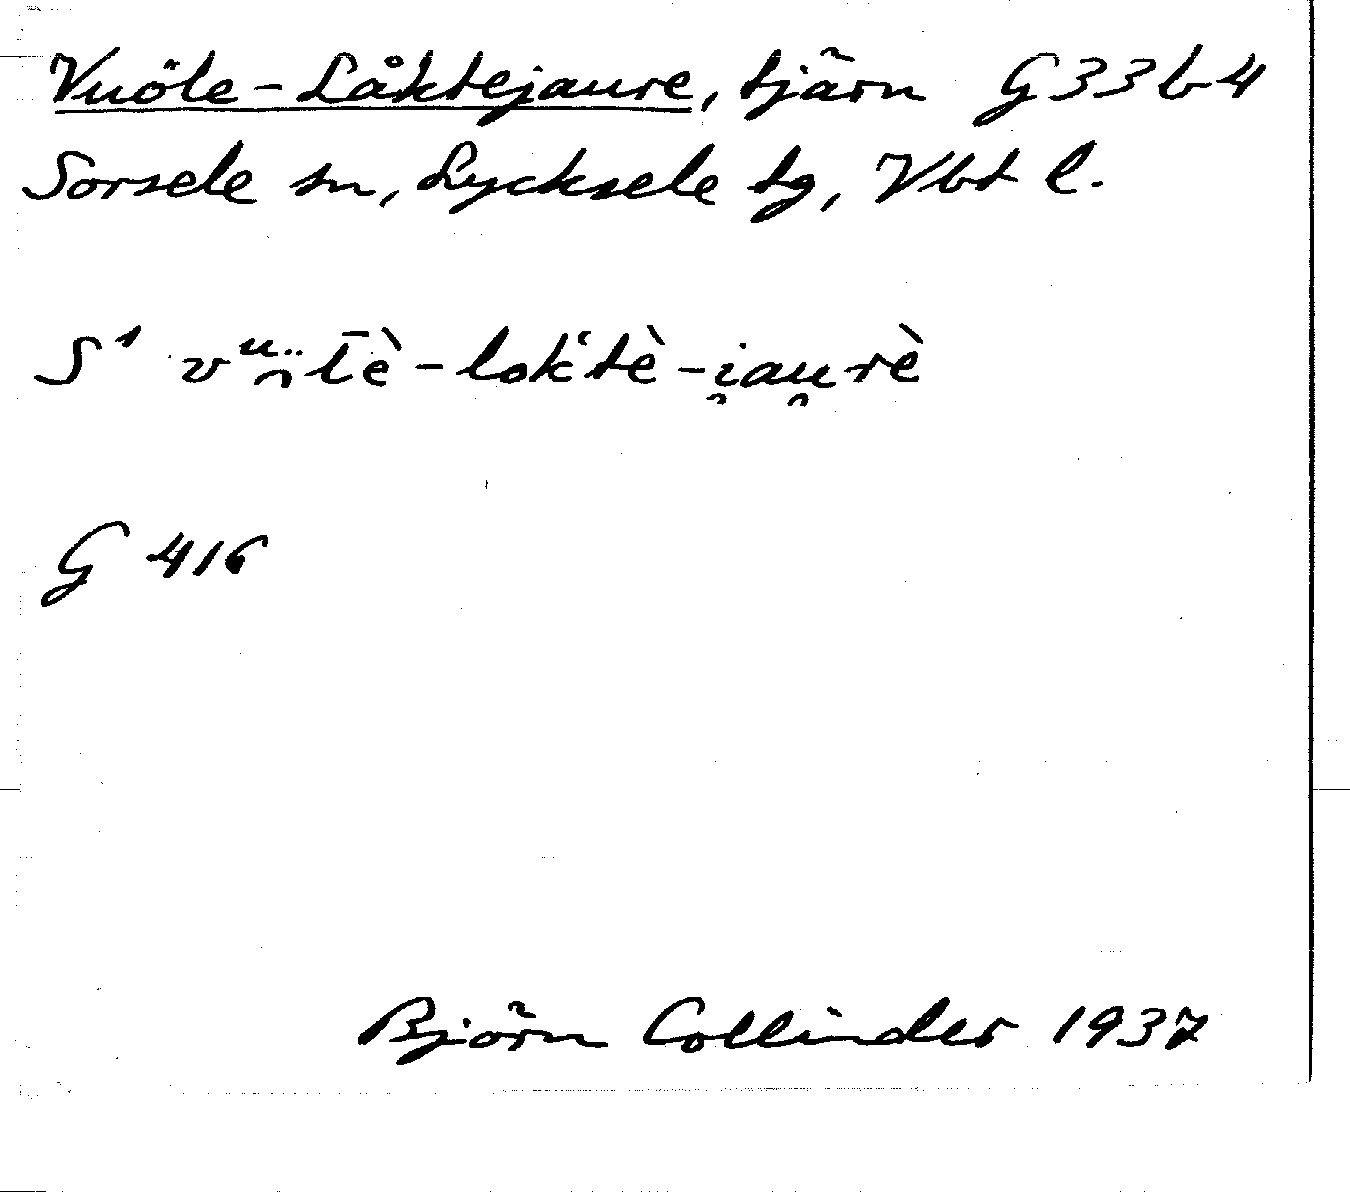 Vuöle-Låktejaure, tjärn G33b4
Sorsele sn, Lycksele tg, Vbt l.
S¹ -lok‘tè-i̯au̯rè
G 416
Björn Collinder 1937